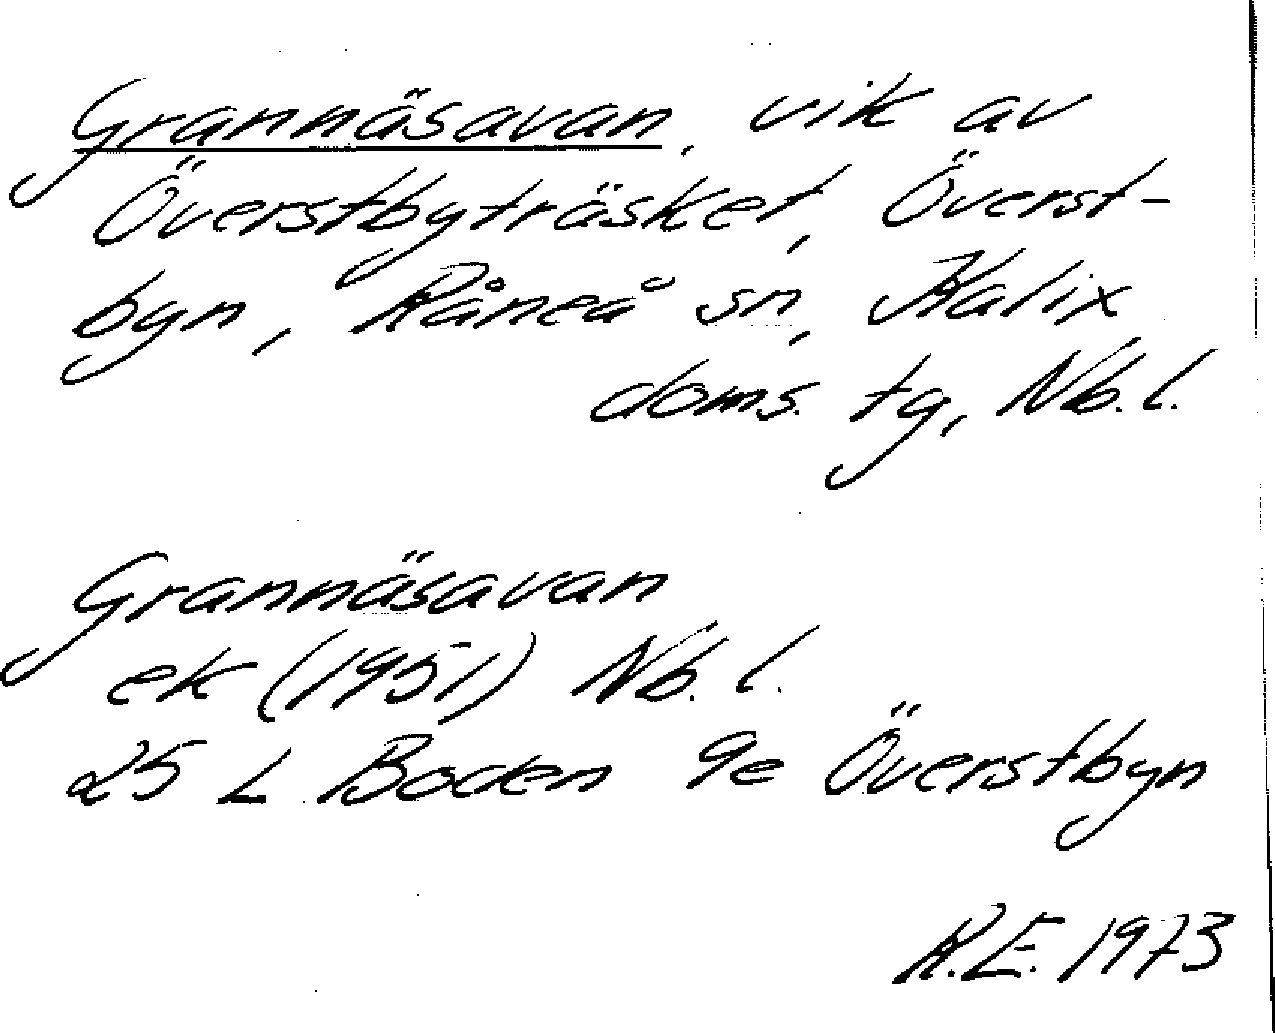 Grannäsavan, vik av
Överstbyträsket, Överst-
byn, Råneå sn, Kalix
doms. tg, Nb. l.
Grannäsavan
ek (1951) Nb. l.
25 L Boden 9e Överstbyn
R.E. 1973